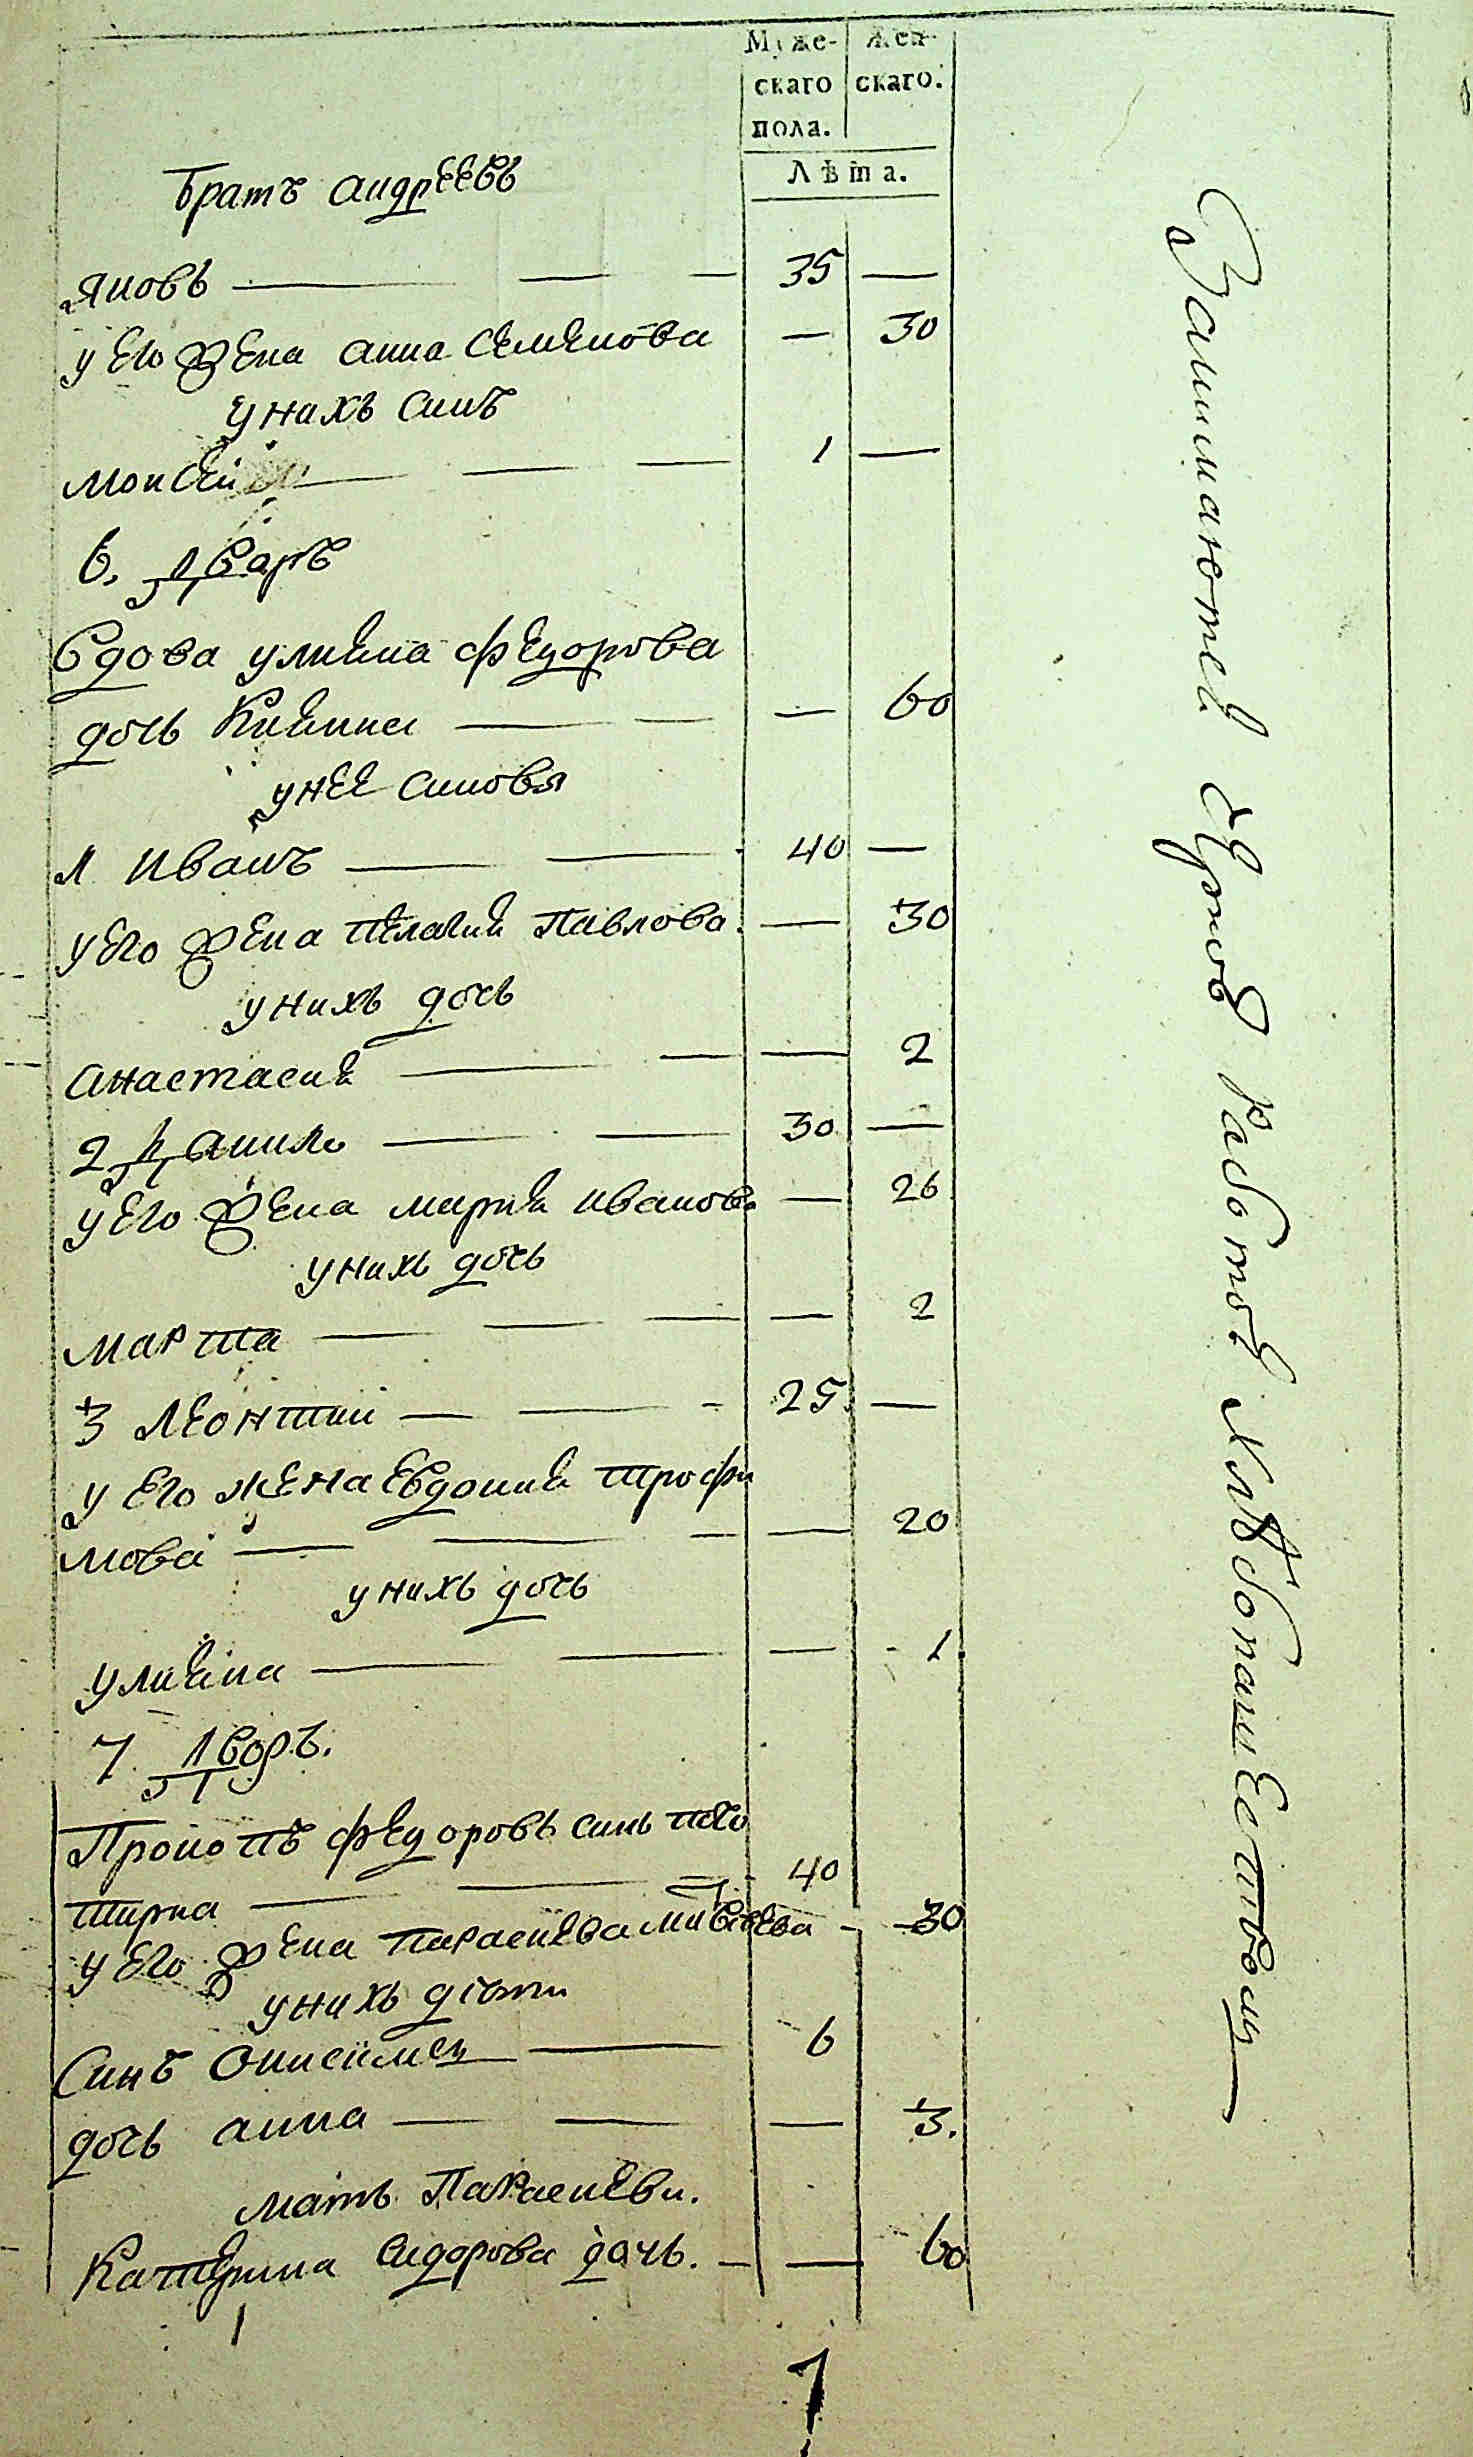 Муже-
скаго
пола.
Жен-
скаго.
Лѣта.
Братъ андрѣевъ
яковъ — 35 —
у его жена анна семенова — 30
у нихъ синъ
моисей — 1 —
6. Дваръ
Вдова улияна федорова
дочь — 60
у нее синовя
1 иванъ — 40 —
у его жена пелагия павлова — 30
у нихъ дочь
анастасия — 2
2 Данило — 30 —
у его жена мария иванова — 26
у нихъ дочь
марта — 2
3 леонтий — 25 —
у его жена Евдокия трофи
мова — 20
у нихъ дочь
улияна — 1
7. Дворъ.
Прокопъ федоровъ синъ
40
у его жена параскева — 30
у нихъ дѣти
Синъ онисимъ — 6
дочь анна — 3.
мать Параскеви.
Катерина Сидорова дочь. — 60
7
Занимаются кромѣ работъ хлѣбопашествомъ